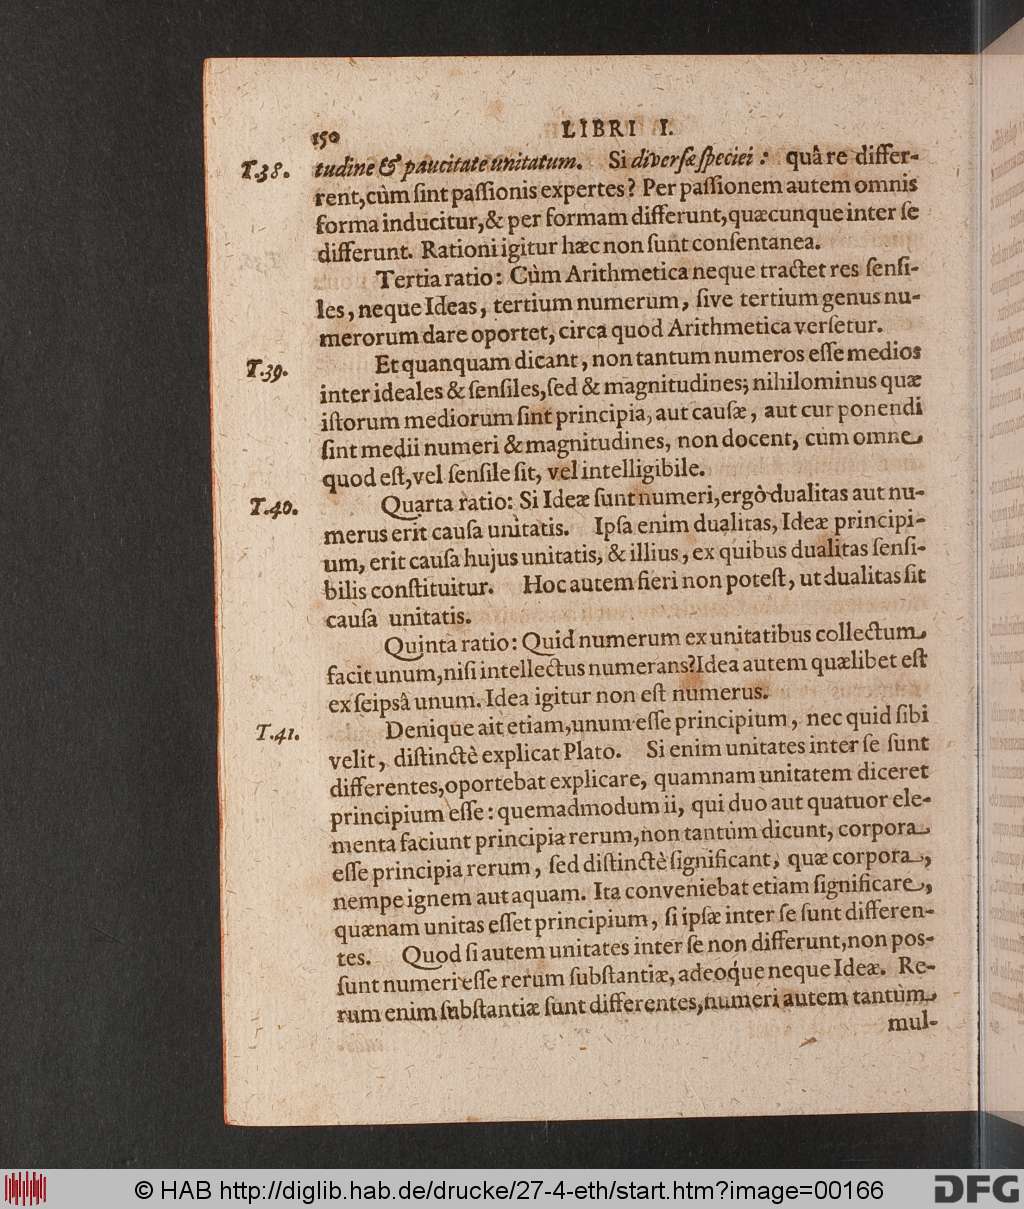 150
LIBRI I.
T.38.
tudine & paucitate unitatum. Si diversæ speciei: quâ re differ-
rent, cùm sint passionis expertes? Per passionem autem omnis
forma inducitur, & per formam differunt, quæcunque inter se
differunt. Rationi igitur hæc non sunt consentanea.
Tertia ratio: Cùm Arithmetica neque tractet res sensi-
les, neque Ideas, tertium numerum, sive tertium genus nu-
merorum dare oportet, circa quod Arithmetica versetur.
T.39.
Et quanquam dicant, non tantum numeros esse medios
inter ideales & sensiles, sed & magnitudines; nihilominus quæ
istorum mediorum sint principia, aut causæ, aut cur ponendi
sint medii numeri & magnitudines, non docent, cum omne
quod est, vel sensile sit, vel intelligibile.
T.40.
Quarta ratio: Si Ideæ sunt numeri, ergò dualitas aut nu-
merus erit causa unitatis. Ipsa enim dualitas, Ideæ principi-
um, erit causa hujus unitatis, & illius, ex quibus dualitas sensi-
bilis constituitur. Hoc autem fieri non potest, ut dualitas sit
causa unitatis.
Quinta ratio: Quid numerum ex unitatibus collectum
facit unum, nisi intellectus numerans? Idea autem quælibet est
ex seipsâ unum. Idea igitur non est numerus.
T.41.
Denique ait etiam, unum esse principium, nec quid sibi
velit, distinctè explicat Plato. Si enim unitates inter se sunt
differentes, oportebat explicare, quamnam unitatem diceret
principium esse: quemadmodum ii, qui duo aut quatuor ele-
menta faciunt principia rerum, non tantùm dicunt, corpora
esse principia rerum, sed distinctè significant, quæ corpora,
nempe ignem aut aquam. Ita conveniebat etiam significare,
quænam unitas esset principium, si ipsæ inter se sunt differen-
tes. Quod si autem unitates inter se non differunt, non pos-
sunt numeri esse rerum substantiæ, adeoq́ue neque Ideæ. Re-
rum enim substantiæ sunt differentes, numeri autem tantùm
mul-
© HAB http://diglib.hab.de/drucke/27-4-eth/start.htm?image=00166
DFG